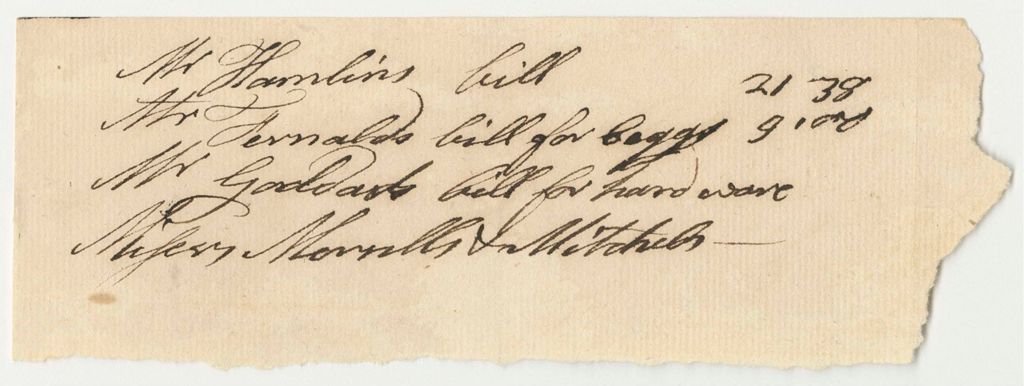 Mr Hamlins bill 21 38
Mr Fernalds bill for 9.00
Mr Goddards bill for hard ware
Messrs Morrills & Mitchels